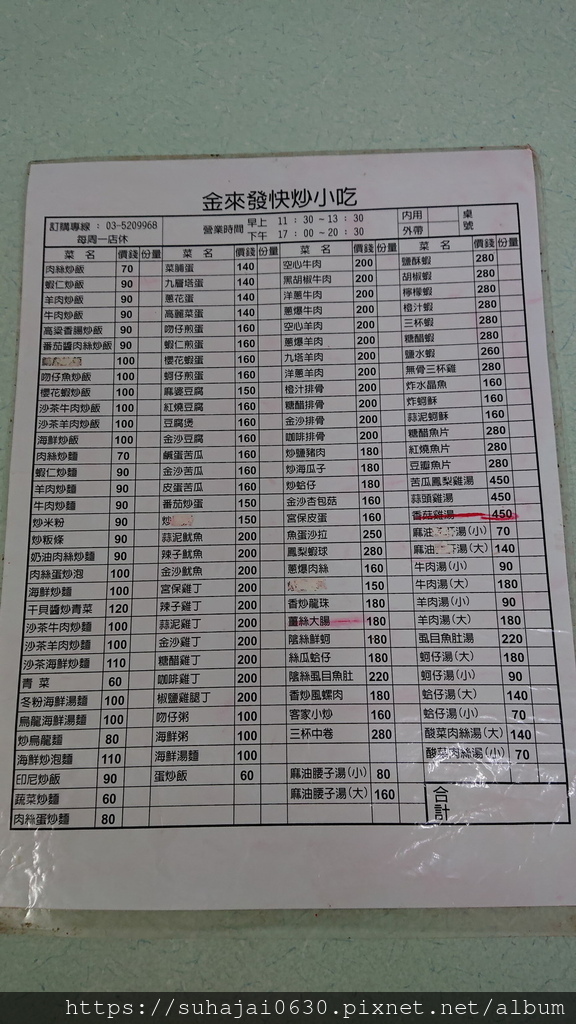 金來發快炒小吃
訂購專線：03-5209968
每周一店休
營業時間 早上 11：30～13：30
下午 17：00～20：30
內用
外帶
桌號
菜 名 價錢 份量 菜 名 價錢 份量 菜 名 價錢 份量 菜 名 價錢 份量
肉絲炒飯 70
蝦仁炒飯 90
羊肉炒飯 90
牛肉炒飯 90
高粱香腸炒飯 90
番茄醬肉絲炒飯 90
100
吻仔魚炒飯 100
櫻花蝦炒飯 100
沙茶牛肉炒飯 100
沙茶羊肉炒飯 100
海鮮炒飯 100
肉絲炒麵 70
蝦仁炒麵 90
羊肉炒麵 90
牛肉炒麵 90
炒米粉 90
炒粄條 90
奶油肉絲炒麵 90
肉絲蛋炒泡 100
海鮮炒麵 100
干貝醬炒青菜 120
沙茶牛肉炒麵 100
沙茶羊肉炒麵 100
沙茶海鮮炒麵 110
青 菜 60
冬粉海鮮湯麵 100
烏龍海鮮湯麵 100
炒烏龍麵 80
海鮮炒泡麵 110
印尼炒飯 90
蔬菜炒麵 60
肉絲蛋炒麵 80
菜脯蛋 140
九層塔蛋 140
蔥花蛋 140
高麗菜蛋 140
吻仔煎蛋 160
蝦仁煎蛋 160
櫻花蝦蛋 160
蚵仔煎蛋 160
麻婆豆腐 150
紅燒豆腐 160
豆腐煲 160
金沙豆腐 160
鹹蛋苦瓜 160
金沙苦瓜 160
皮蛋苦瓜 160
番茄炒蛋 150
炒 150
蒜泥魷魚 200
辣子魷魚 200
金沙魷魚 200
宮保雞丁 200
辣子雞丁 200
蒜泥雞丁 200
金沙雞丁 200
糖醋雞丁 200
咖啡雞丁 200
椒鹽雞腿丁 200
吻仔粥 100
海鮮粥 100
海鮮湯麵 100
蛋炒飯 60
空心牛肉 200
黑胡椒牛肉 200
洋蔥牛肉 200
蔥爆牛肉 200
空心羊肉 200
蔥爆羊肉 200
九塔羊肉 200
洋蔥羊肉 200
橙汁排骨 200
糖醋排骨 200
金沙排骨 200
咖啡排骨 200
炒鹽豬肉 180
炒海瓜子 180
炒蛤仔 180
金沙杏包菇 160
宮保皮蛋 160
魚蛋沙拉 250
鳳梨蝦球 280
蔥爆肉絲 160
150
香炒龍珠 180
薑絲大腸 180
陰絲鮮蚵 180
絲瓜蛤仔 180
陰絲虱目魚肚 220
香炒風螺肉 180
客家小炒 160
三杯中卷 280
麻油腰子湯(小) 80
麻油腰子湯(大) 160
鹽酥蝦 280
胡椒蝦 280
檸檬蝦 280
橙汁蝦 280
三杯蝦 280
糖醋蝦 280
鹽水蝦 260
無骨三杯雞 280
炸水晶魚 160
炸蚵酥 160
蒜泥蚵酥 160
糖醋魚片 280
紅燒魚片 280
豆瓣魚片 280
苦瓜鳳梨雞湯 450
蒜頭雞湯 450
香菇雞湯 450
麻油湯(小) 70
麻油湯(大) 140
牛肉湯(小) 90
牛肉湯(大) 180
羊肉湯(小) 90
羊肉湯(大) 180
虱目魚肚湯 220
蚵仔湯(大) 180
蚵仔湯(小) 90
蛤仔湯(大) 140
蛤仔湯(小) 70
酸菜肉絲湯(大) 140
酸菜肉絲湯(小) 70
合計
https://suhajai0630.pixnet.net/album